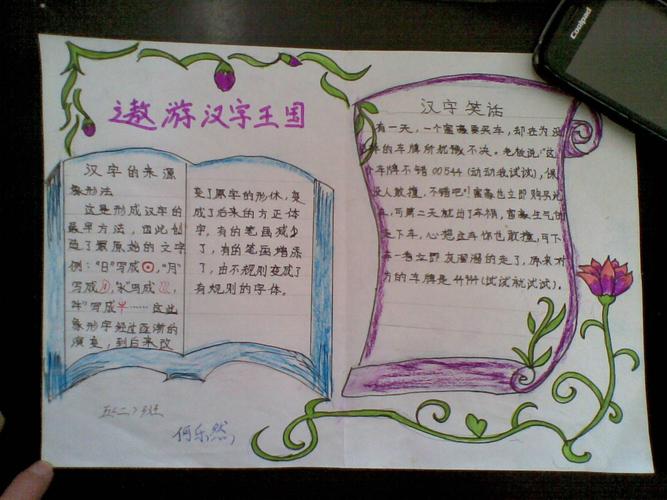 遨游汉字王国
汉字的来源
象形法
这是形成汉字的
最早方法，因此创
造了最原始的文字
例："日"写成 ，"月"
写成 ，"水"写成 ，
"牛"写成 ……这些
象形字经过逐渐的
演变，到后来改
变了原字的形体，变
成了后来的方正体
字，有的笔画减少
了，有的笔画增添
了，由不规则变成了
有规则的字体。
汉字笑话
有一天，一个富豪要买车，却在为
车的车牌所犹豫不决。老板说："这
个车牌不错00544(动动我试试)，保
没人敢撞，不错吧！富豪也立即购买
车，可第二天就出了车祸，富豪生气
走下车，心想这车你也敢撞，可下
车一看立即灰溜溜的走了，原来对
方的车牌是44944(试试就试试)。
五(二)班
何乐然
Coolpad